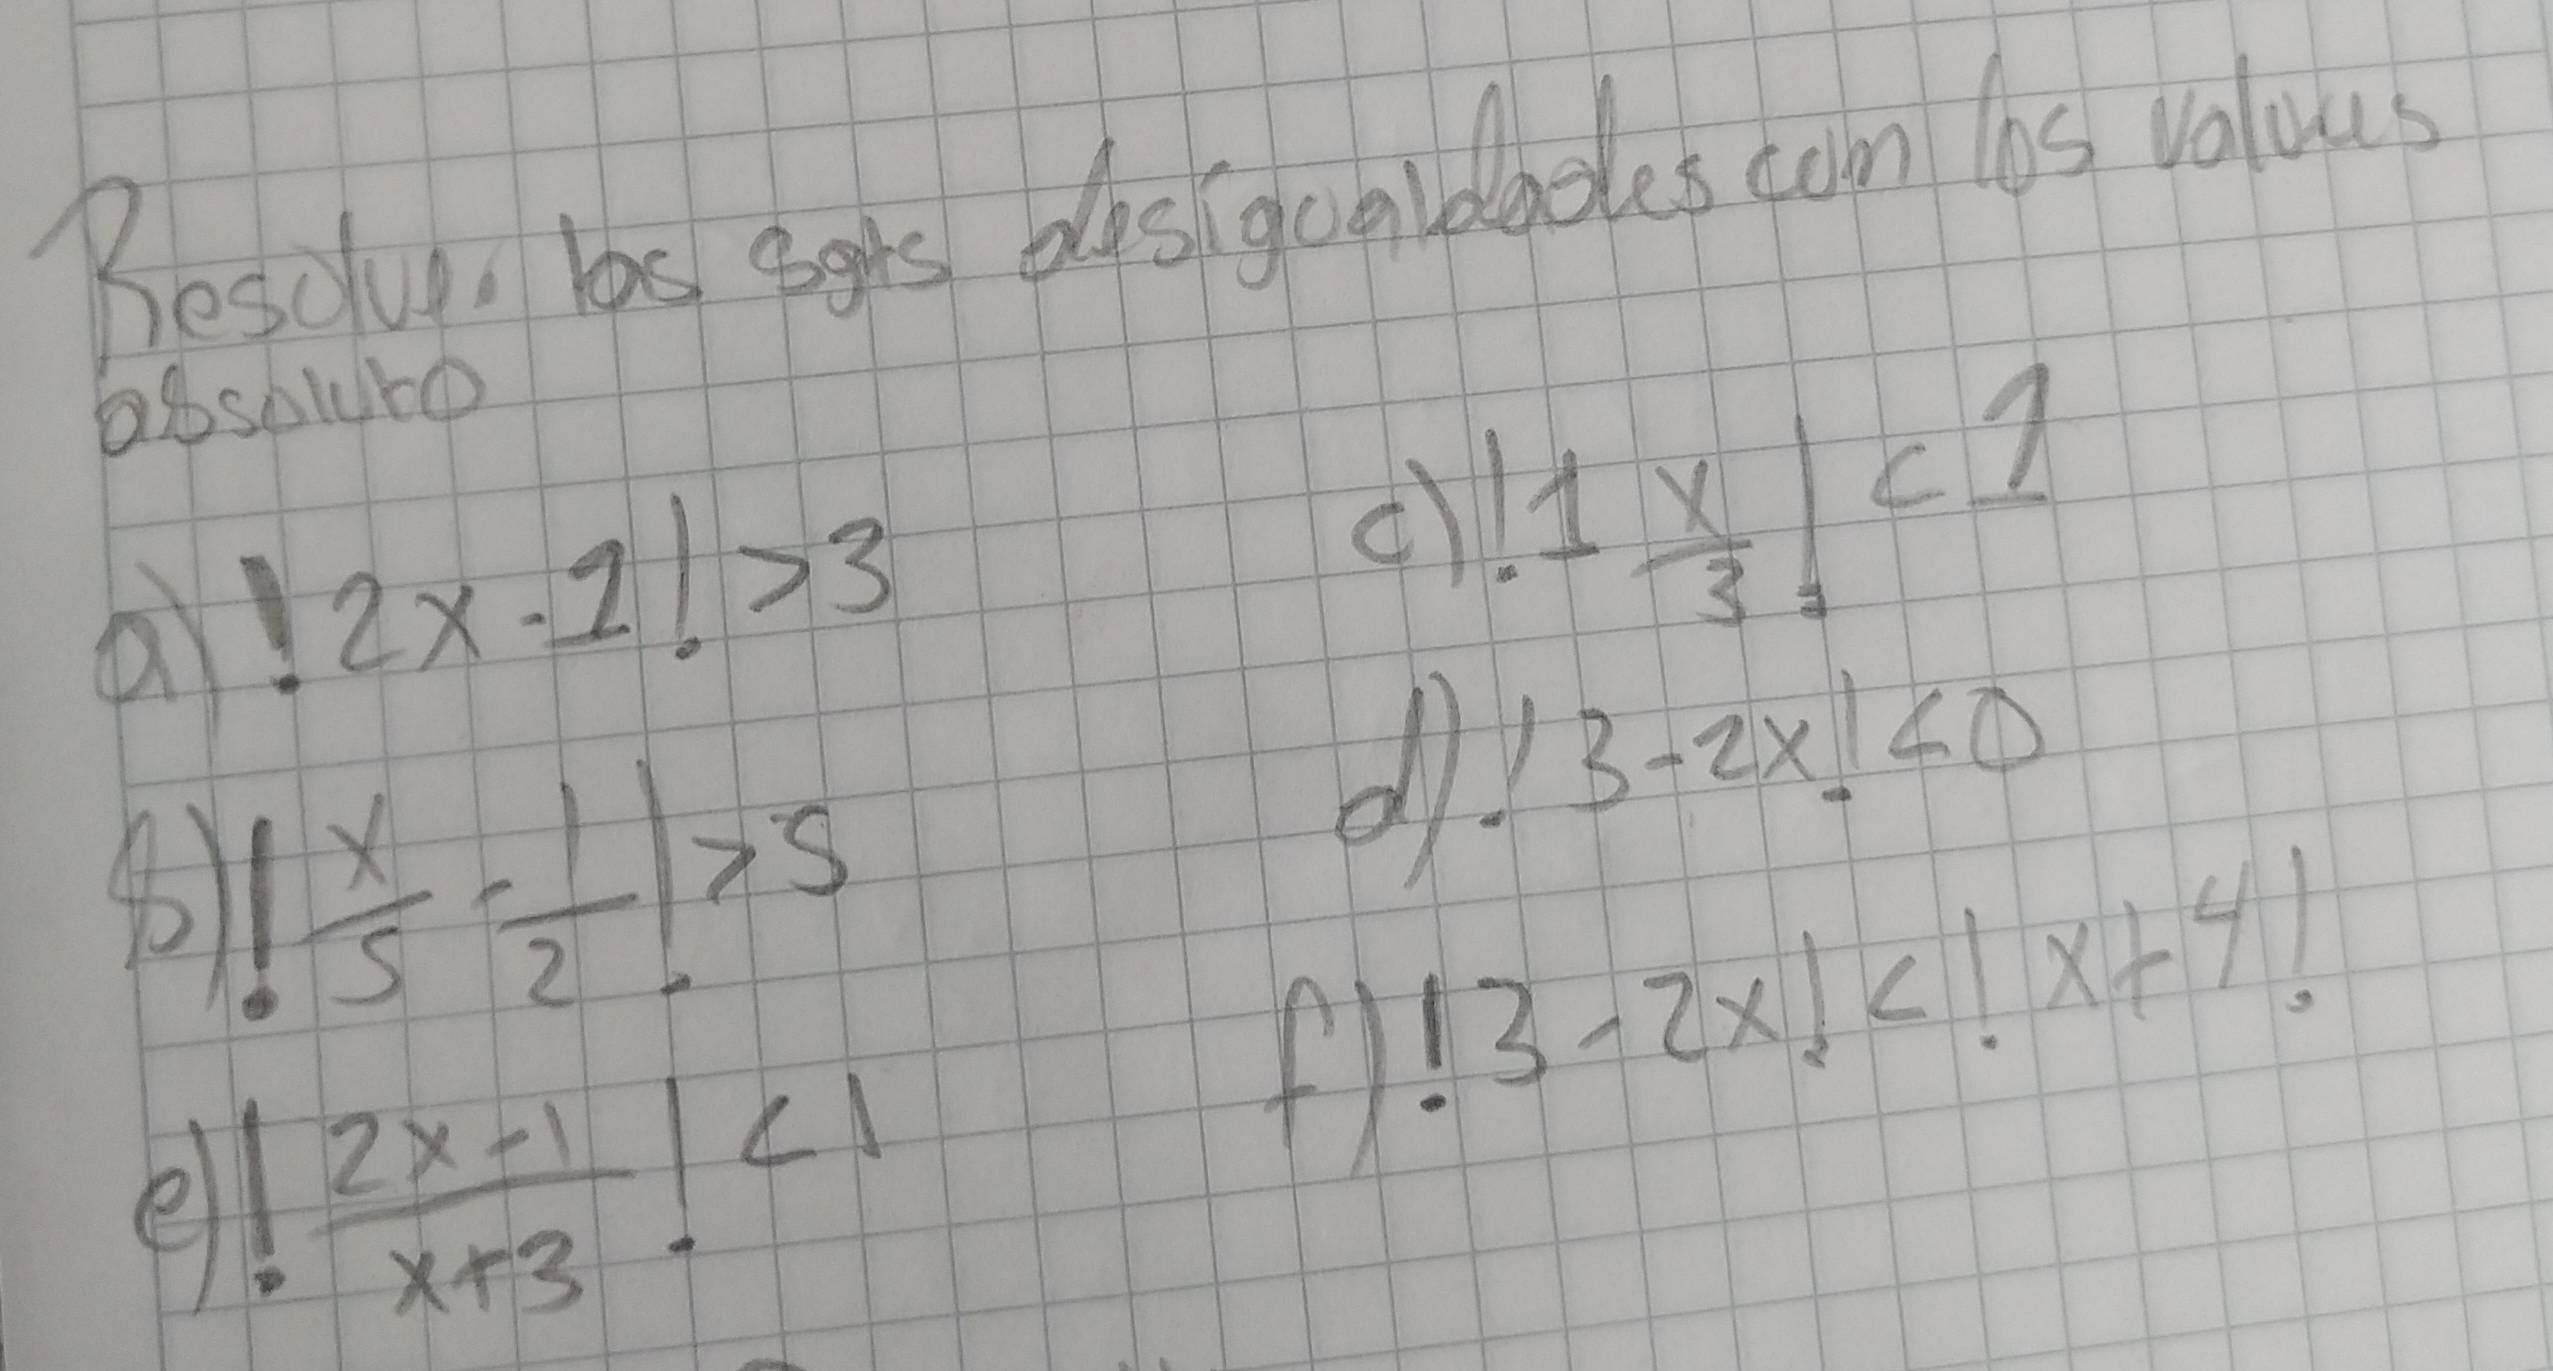 Resolver las sgts desigualdades con los valores
absoluto
a) !2x-1!>3
c) !1 x/3!<1
b) !x/5 - 1/2!>5
d) !3-2x!<0
e) !2x-1/x+3!<1
f) !3-2x!<!x+4!